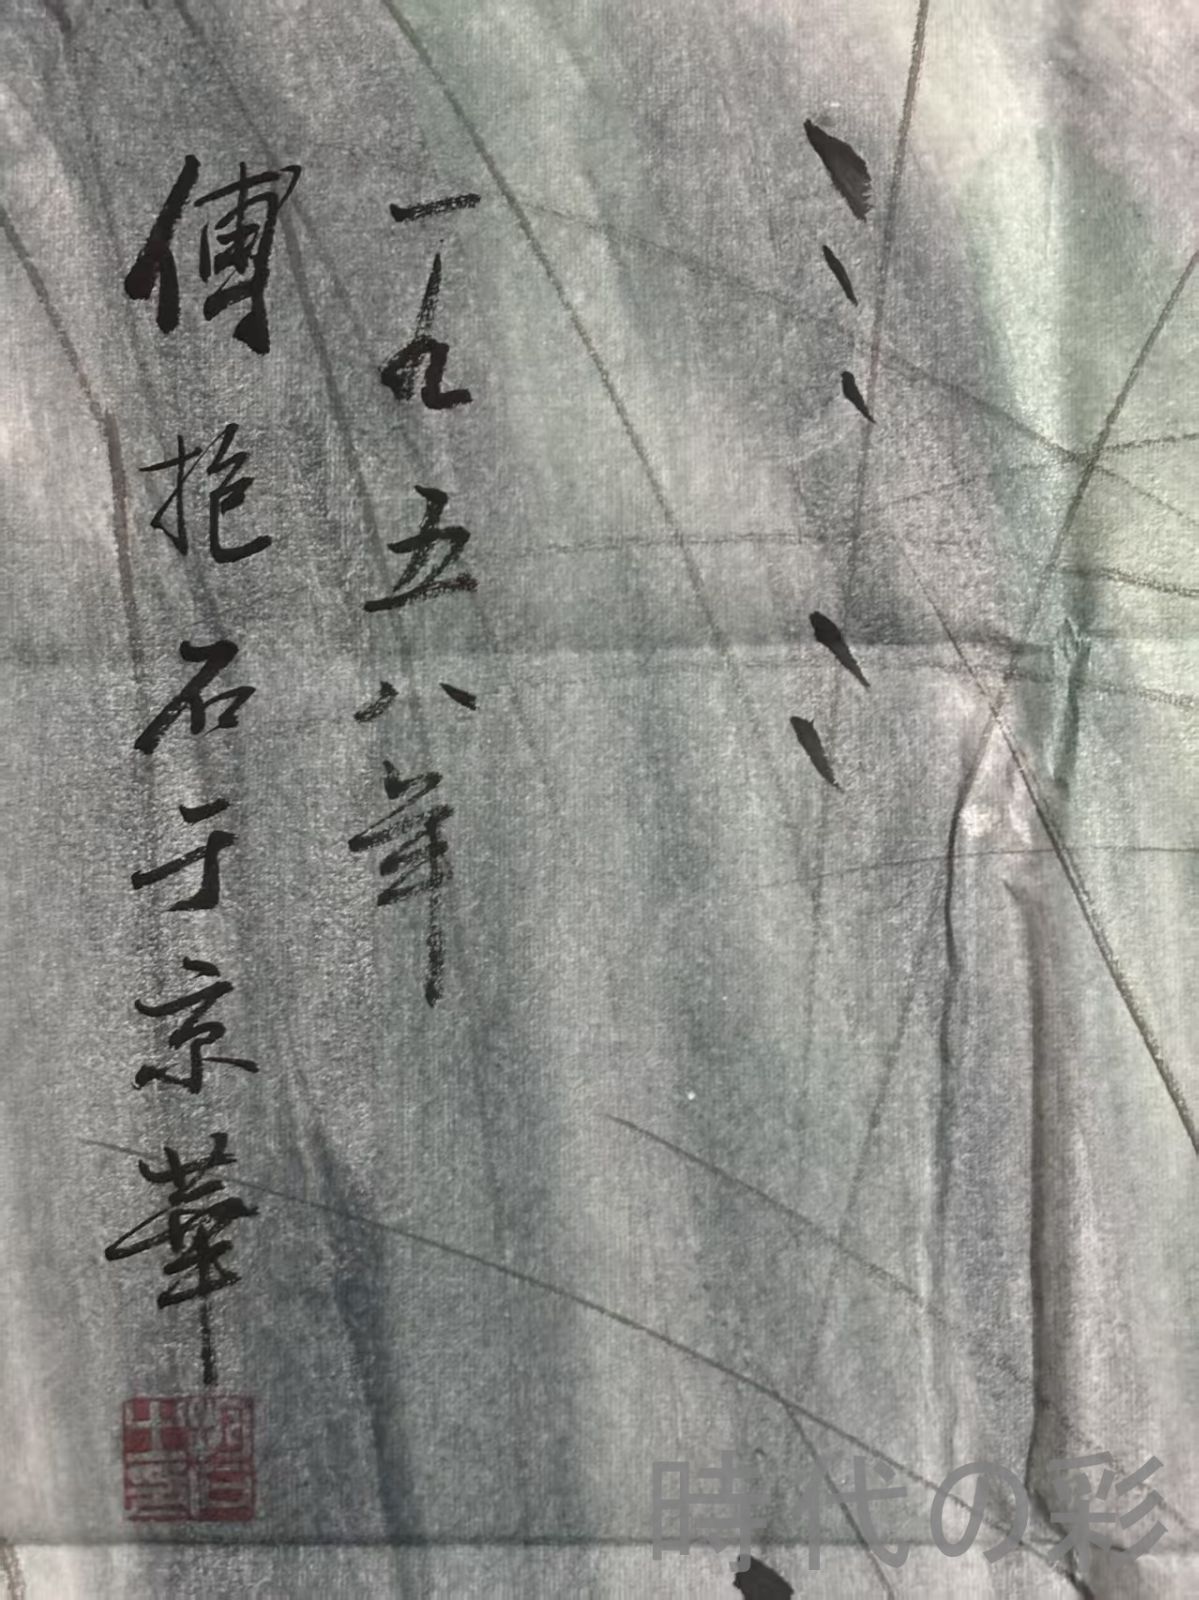 一九五八年
傅抱石于京華
時代の彩